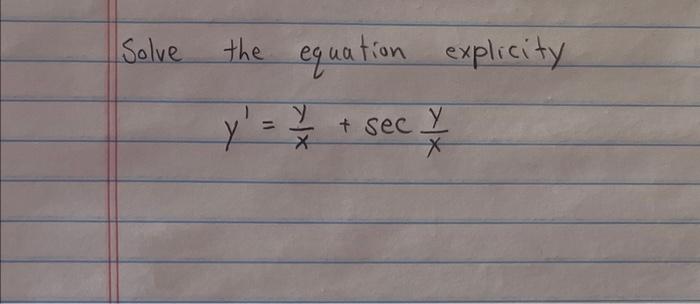 Solve the equation explicity
y' = y/x + sec y/x